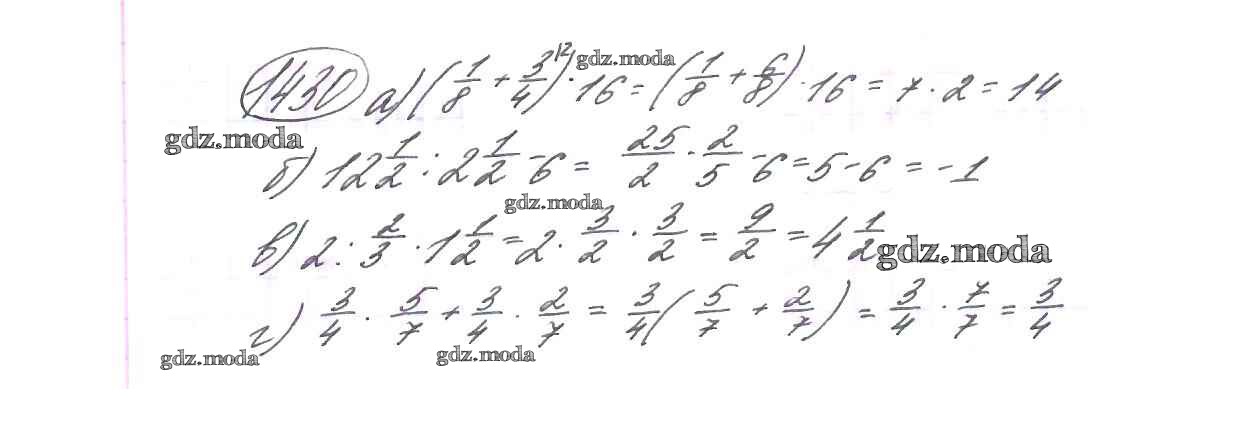 1430 а) (1/8 + 3/4^{12}) · 16 = (1/8 + 6/8) · 16 = 7 · 2 = 14
gdz.moda
gdz.moda
б) 12 1/2 : 2 1/2 - 6 = 25/2 · 2/5 - 6 = 5 - 6 = -1
gdz.moda
в) 2 : 2/3 · 1 1/2 = 2 · 3/2 · 3/2 = 9/2 = 4 1/2
gdz.moda
г) 3/4 · 5/7 + 3/4 · 2/7 = 3/4 (5/7 + 2/7) = 3/4 · 7/7 = 3/4
gdz.moda
gdz.moda